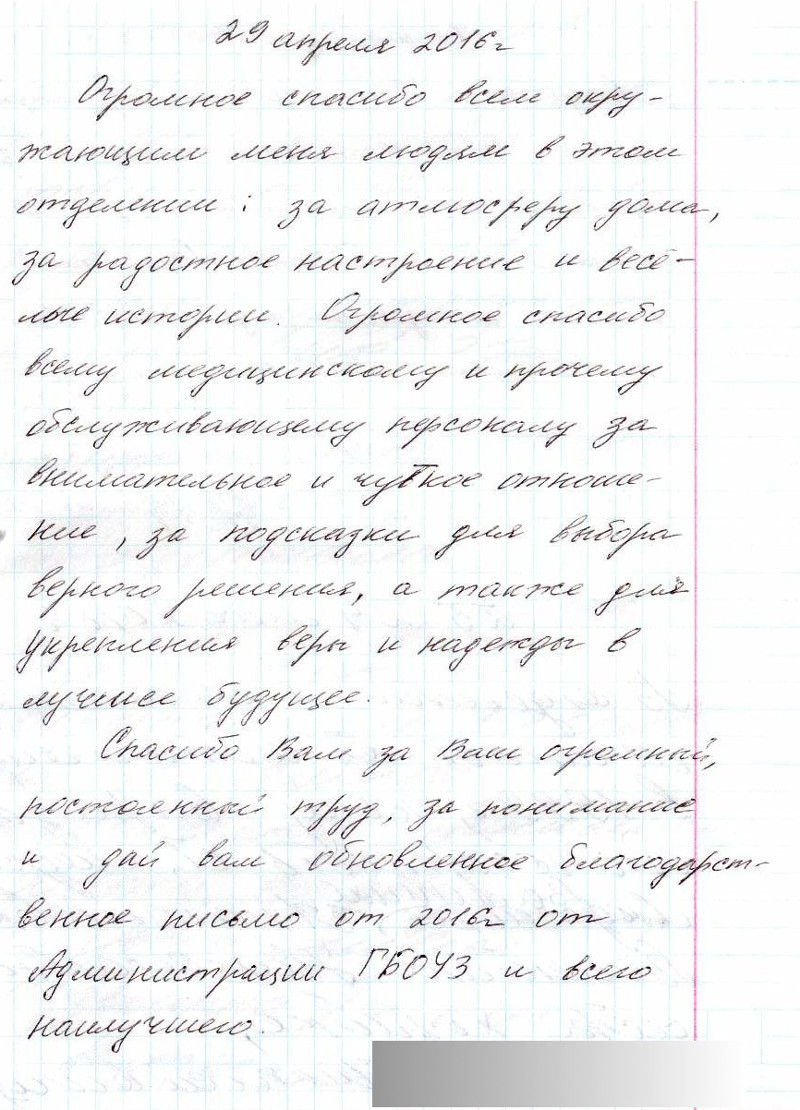 29 апреля 2016г
Огромное спасибо всем окру-
жающим меня людям в этом
отделении: за атмосферу дома,
за радостное настроение и весё-
лые истории. Огромное спасибо
всему медицинскому и прочему
обслуживающему персоналу за
внимательное и чуткое отноше-
ние, за подсказки для выбора
верного решения, а также для
укрепления веры и надежды в
лучшее будущее.
Спасибо Вам за Ваш огромный,
постоянный труд, за понимание
и дай вам обновленное благодарст-
венное письмо от 2016г от
Администрации ГБОУЗ и всего
наилучшего.